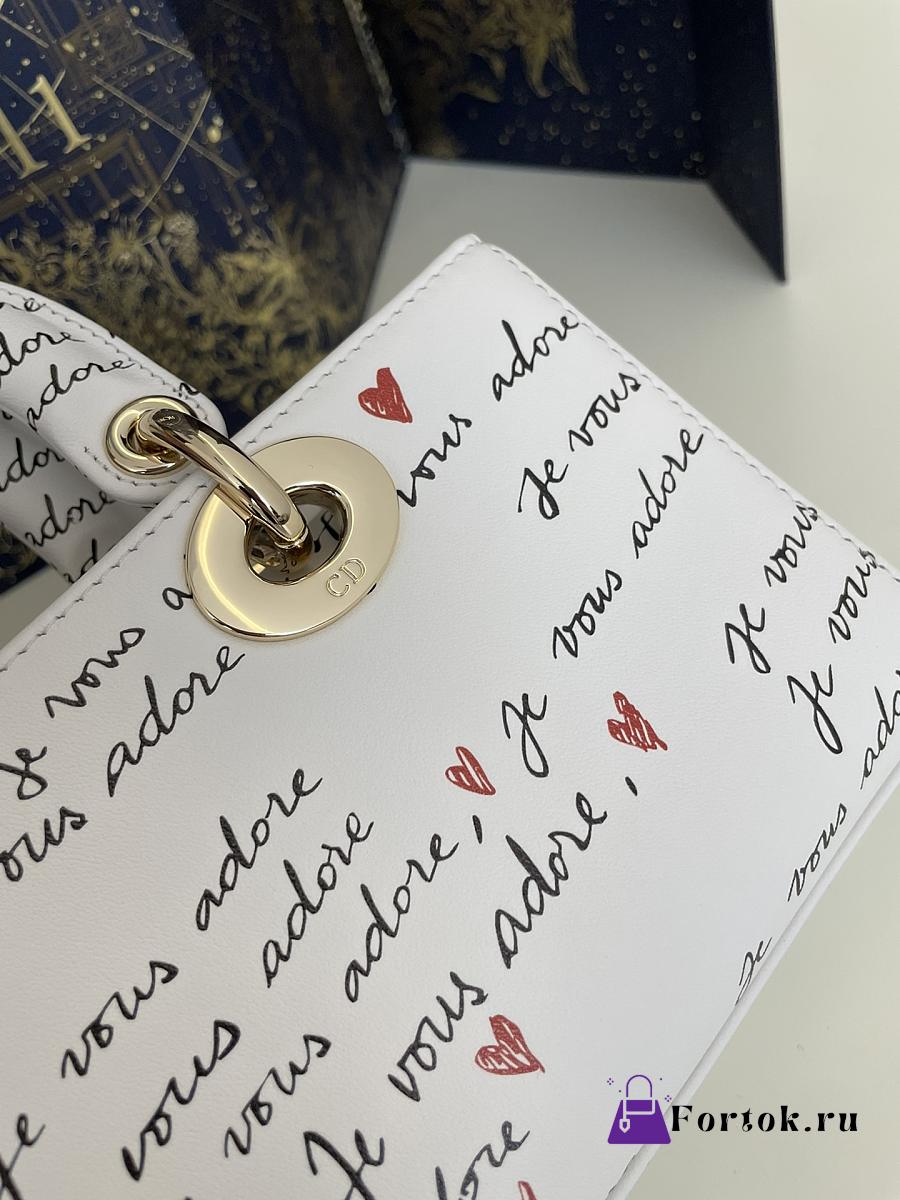 11
adore
adore
adore
adore
adore
vous adore
Je vous
CD
vous adore
Je vous
Je vous
vous adore
Je
Je vous
adore
Je
vous
adore
adore
adore,
adore,
Je vous
vous
vous
Je vous
Je
Fortok.ru